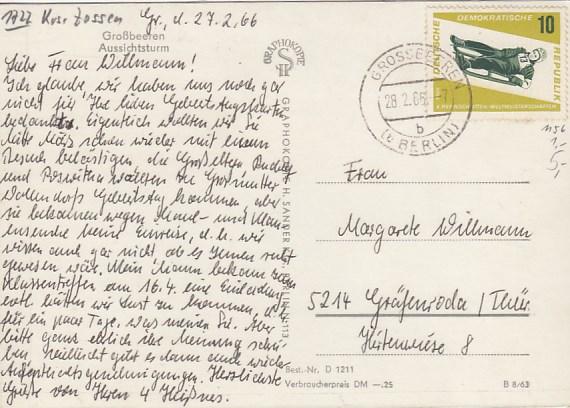 1922 Krs. Zossen Gr., d. 27.2.66
Großbeeren
Aussichtsturm
Liebe Frau Willmann!
Ich glaube, wir haben uns noch gar
nicht für Ihre lieben Geburtstagskarten
bedankt. Eigentlich wollten wir Sie
Mitte März schon wieder mit einem
Besuch belästigen, die Großeltern
und Roswitha wollten zu Großmutter
Geburtstag kommen, aber
sie bekommen wegen Maul- und Klauen-
seuche keine Einreise, d.h. wir
wissen auch gar nicht, ob es Ihnen recht
gewesen wäre. Mein Mann bekam zum
Klassentreffen am 16.4. eine Einladung
evtl. hätten wir Lust zu kommen,
für ein paar Tage. Was meinen Sie. Aber
bitte ganz ehrlich Ihre Meinung schrei-
ben. Vielleicht gibt es dann auch wieder
Aufenthaltsgenehmigungen. Herzlichste
Grüße von Ihren 4
GRAPHOKOPIE
H S
GRAPHOKOPIE H. SANDER KG, BERLIN
DEUTSCHE DEMOKRATISCHE REPUBLIK
10
X. RENNSCHLITTEN-WELTMEISTERSCHAFTEN
GROSSBEEREN
28.2.66
b
(b BERLIN)
1156
1,-
5,-
Frau
Margarete Willmann
5214 Gräfenroda / Thür.
Hirtenwiese 8
Best.-Nr. D 1211
Verbraucherpreis DM —.25
B 8/63